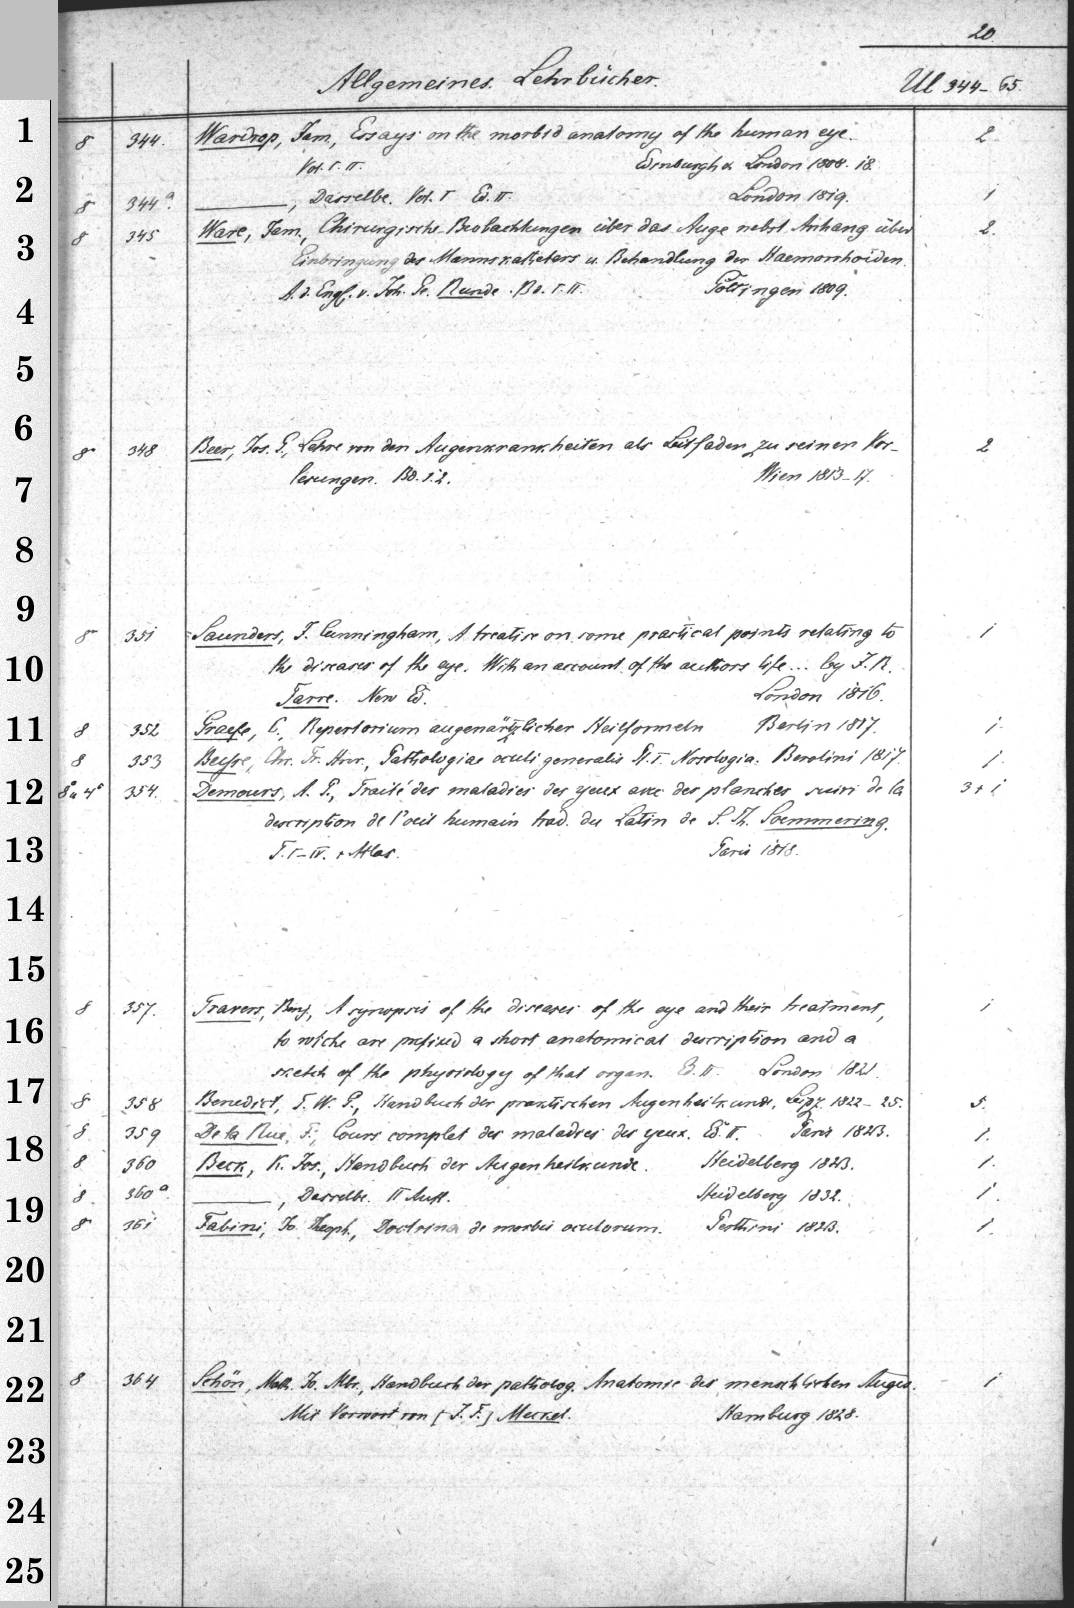 20.
Allgemeines. Lehrbücher. Ul 344-65.
1
8 344. Wardrop, Jam., Essays on the morbid anatomy of the human eye. 2
Vol. I. II. Edinburgh & London 1808. 18.
2
8 344a. ———, Dasselbe. Vol. I Ed. II. London 1819. 1
8 345 Ware, Jam., Chirurgische Beobachtungen über das Auge nebst Anhang über 2.
3
Einbringung des Mannskatheters u. Behandlung der Haemorrhoiden.
A. d. Engl. v. Joh. Ge. Runde. Bd. I. II. Göttingen 1809.
4
5
6
8 348 Beer, Jos. G., Lehre von den Augenkrankheiten als Leitfaden zu seinen Vor- 2
lesungen. Bd. 1.2. Wien 1813-17.
7
8
9
8 351 Saunders, J. Cunningham, A treatise on some practical points relating to 1
10
the diseases of the eye. With an account of the authors life... by J. R.
Farre. New Ed. London 1816.
11
8 352 Graefe, C., Repertorium augenärtzlicher Heilformeln Berlin 1817. 1.
8 353 Chr. Fr. Pathologiae oculi generalis P. I. Nosologia. Berolini 1817. 1.
12
8° u 4° 354. Demours, A. P., Traité des maladies des yeux avec des planches suivi de la 3+1
description de l'oeil humain trad. du Latin de S. Th. Soemmering.
13
T. I-IV. + Atlas. Paris 1818.
14
15
8 357. Travers, Benj., A synopsis of the diseases of the eye and their treatment, 1
16
to wiche are prefixed a short anatomical description and a
sketch of the physiology of that organ. Ed. II. London 1821.
17
8 358 Benedict, T. W. G., Handbuch der praktischen Augenheilkunde, Leipz. 1822-25. 5.
8 359 De la Rue, F., Cours complet des maladies des yeux. Ed. II. Paris 1823. 1.
18
8 360 Beck, K. Jos., Handbuch der Augenheilkunde. Heidelberg 1823. 1.
8. 360a. ———, Dasselbe. II Aufl. Heidelberg 1832. 1.
19
8 361 Fabini, Jo. Theoph., Doctrina de morbis oculorum. Pesthini 1823. 1.
20
21
8 364 Schön, Math. Jo. Alb., Handbuch der patholog. Anatomie des menschlichen Auges. 1
22
Mit Vorwort von [J. F.] Meckel. Hamburg 1828.
23
24
25